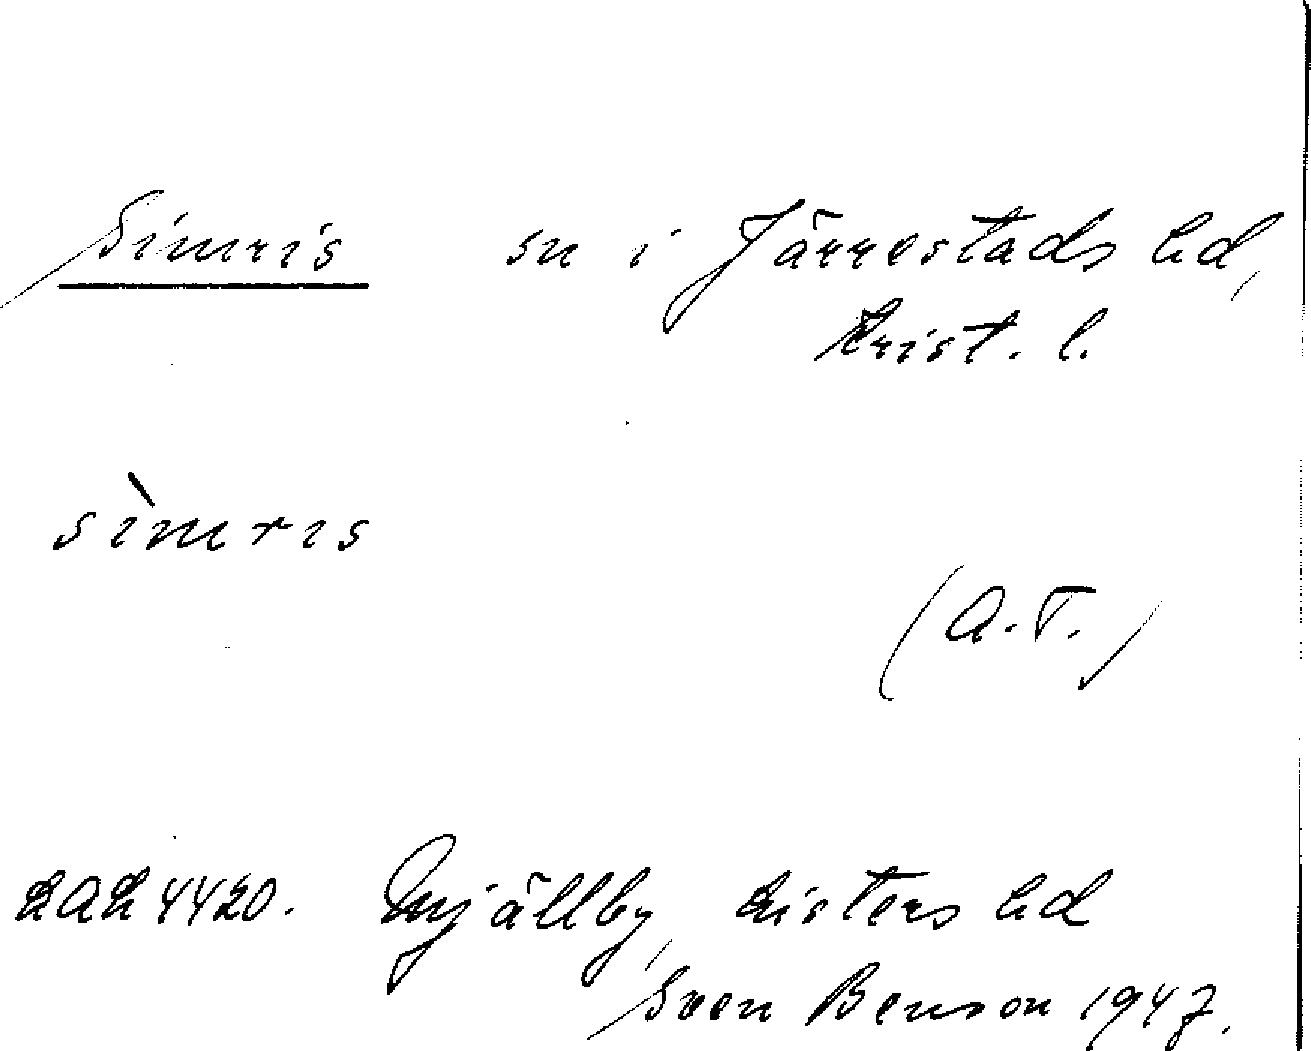 Simris sn i Järrestads hd,
Krist. l.
sìmris
(A.T.)
LAL 4420. Mjällby, Listers hd
Sven Benson 1947.